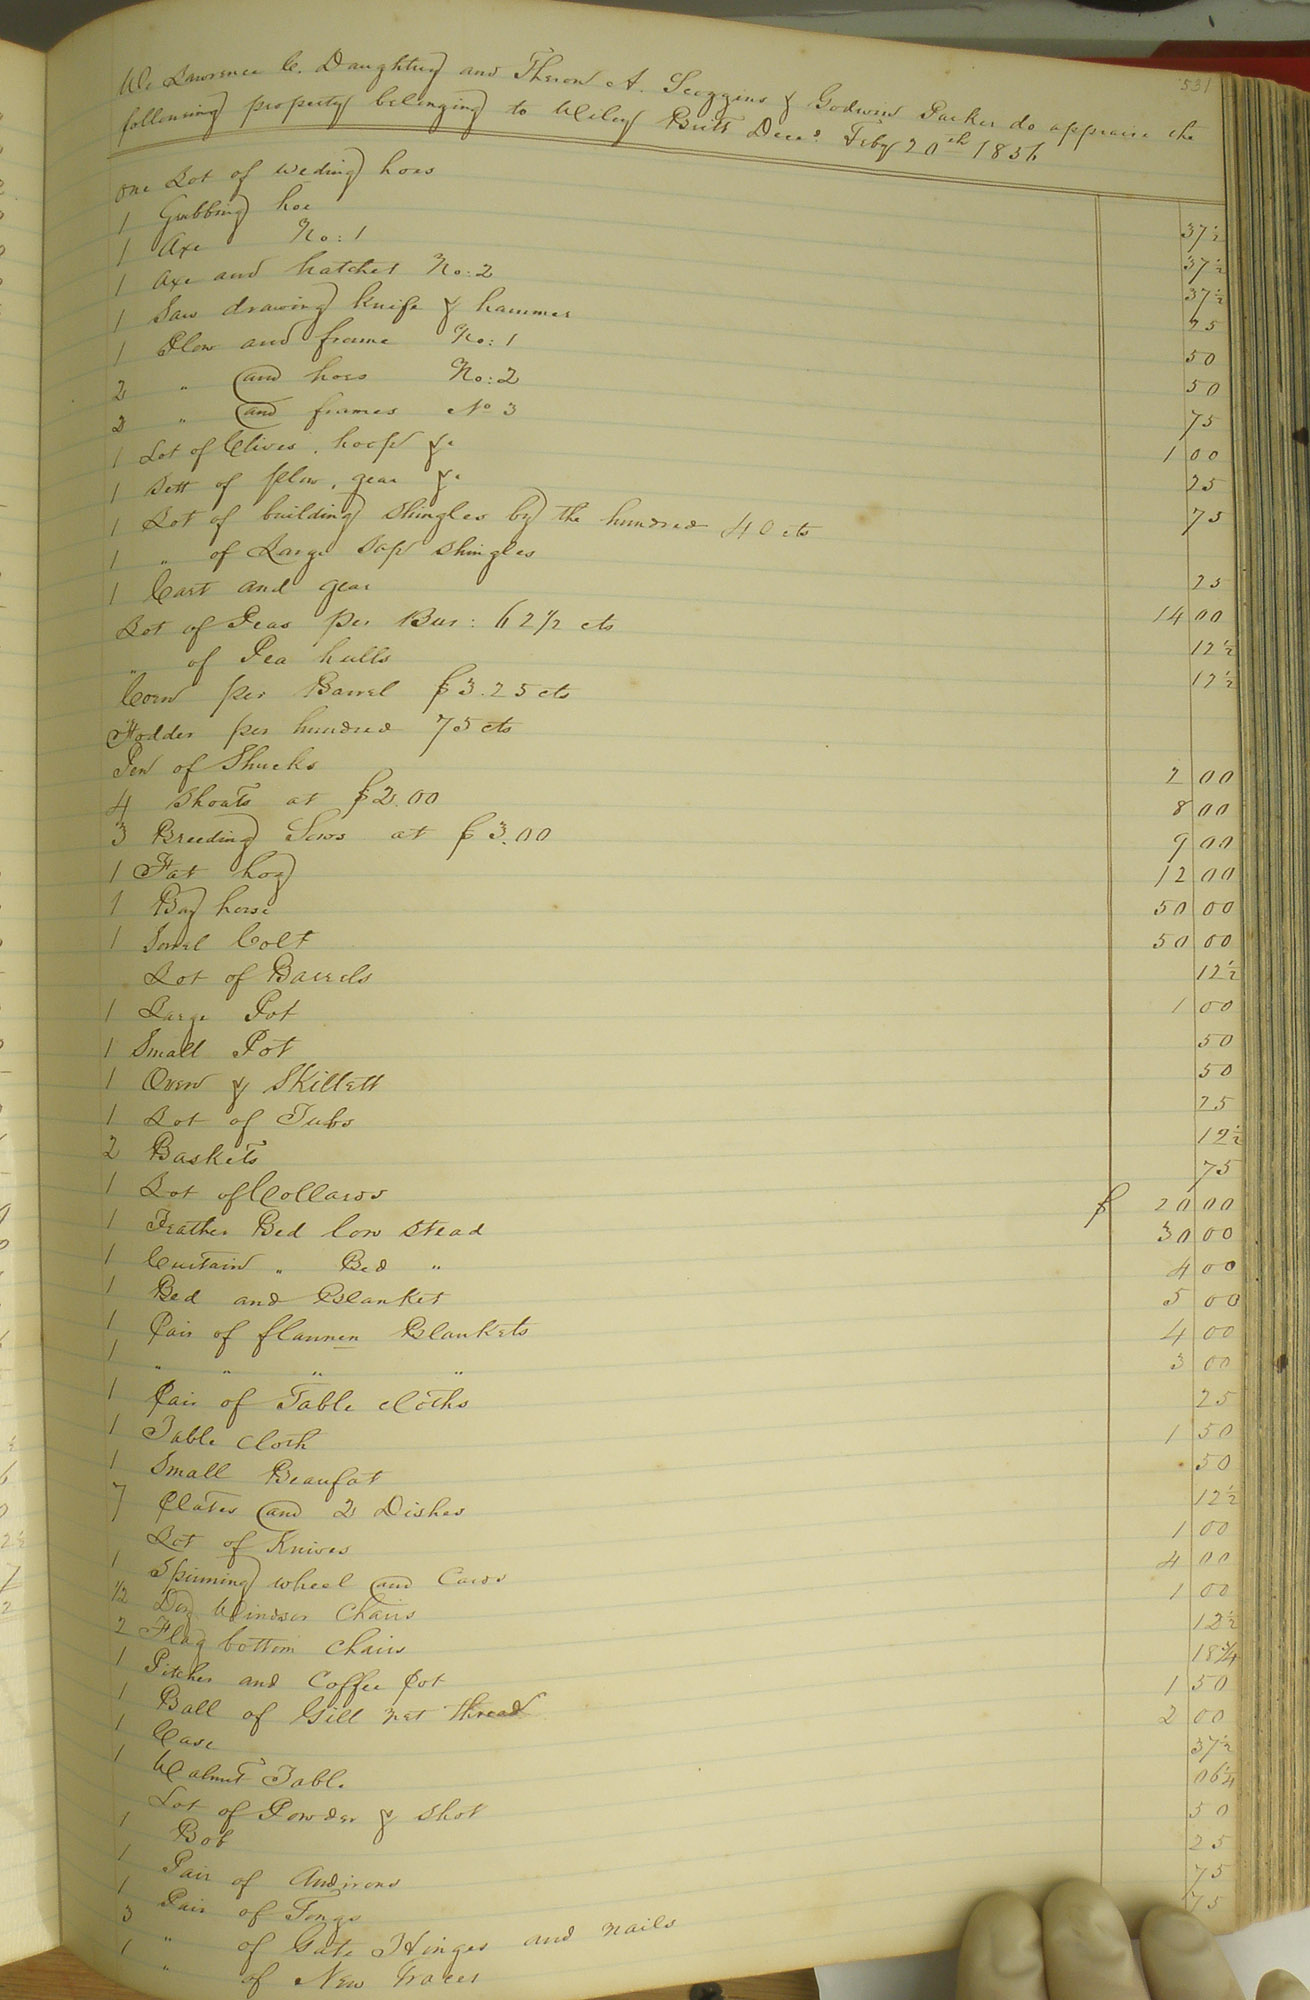 531
We Lawrence C. Daughtry and Theron A. Scoggins & Godwin Parker do appraise the
following property belonging to Wiley Britt Decd. Feby 20th 1856
One Lot of weding hoes 37½
1 Grubbing hoe 37½
1 Axe No: 1 37½
1 Axe and hatchet No: 2 75
1 Saw drawing knife & hammer 50
1 Plow and frame No: 1 50
2 " and hoes No: 2 75
2 " and frames No 3 1 00
1 Lot of Clives, hoops &c 25
1 Sett of plow, gear &c 75
1 Lot of building Shingles by the hundred 40 cts
1 " of Large Sap Shingles 25
1 Cart and gear 14 00
Lot of Peas per Bus: 62½ cts 12½
" of Pea hulls 12½
Corn per Barrel $3.25 cts
Fodder per hundred 75 cts
Pen of Shucks 2 00
4 Shoats at $2.00 8 00
3 Breeding Sows at $3.00 9 00
1 Fat hog 12 00
1 Bay horse 50 00
1 Sorrel Colt 50 00
Lot of Barrels 12½
1 Large Pot 1 00
1 Small Pot 50
1 Oven & Skillett 50
1 Lot of Tubs 25
2 Baskets 12½
1 Lot of Collards 75
1 Feather Bed low stead $ 20 00
1 Curtain " Bed " 30 00
1 Bed and Blanket 4 00
1 Pair of flannen Blankets 5 00
1 " " " " 4 00
1 Pair of Table cloths 3 00
1 Table cloth 25
1 Small Beaufat 1 50
7 Plates and 2 Dishes 50
Lot of Knives 12½
1 Spinning wheel and Cards 1 00
½ Doz Windsor Chairs 4 00
2 Flag bottom chairs 1 00
1 Pitcher and Coffee Pot 12½
1 Ball of Gill net thread 18¾
1 Case 1 50
1 Walnut Table 2 00
Lot of Powder & Shot 37½
1 Bob 06¼
1 Pair of Andirons 50
1 Pair of Tongs 25
3 " of Gate Hinges and nails 75
1 " of New Traces 75